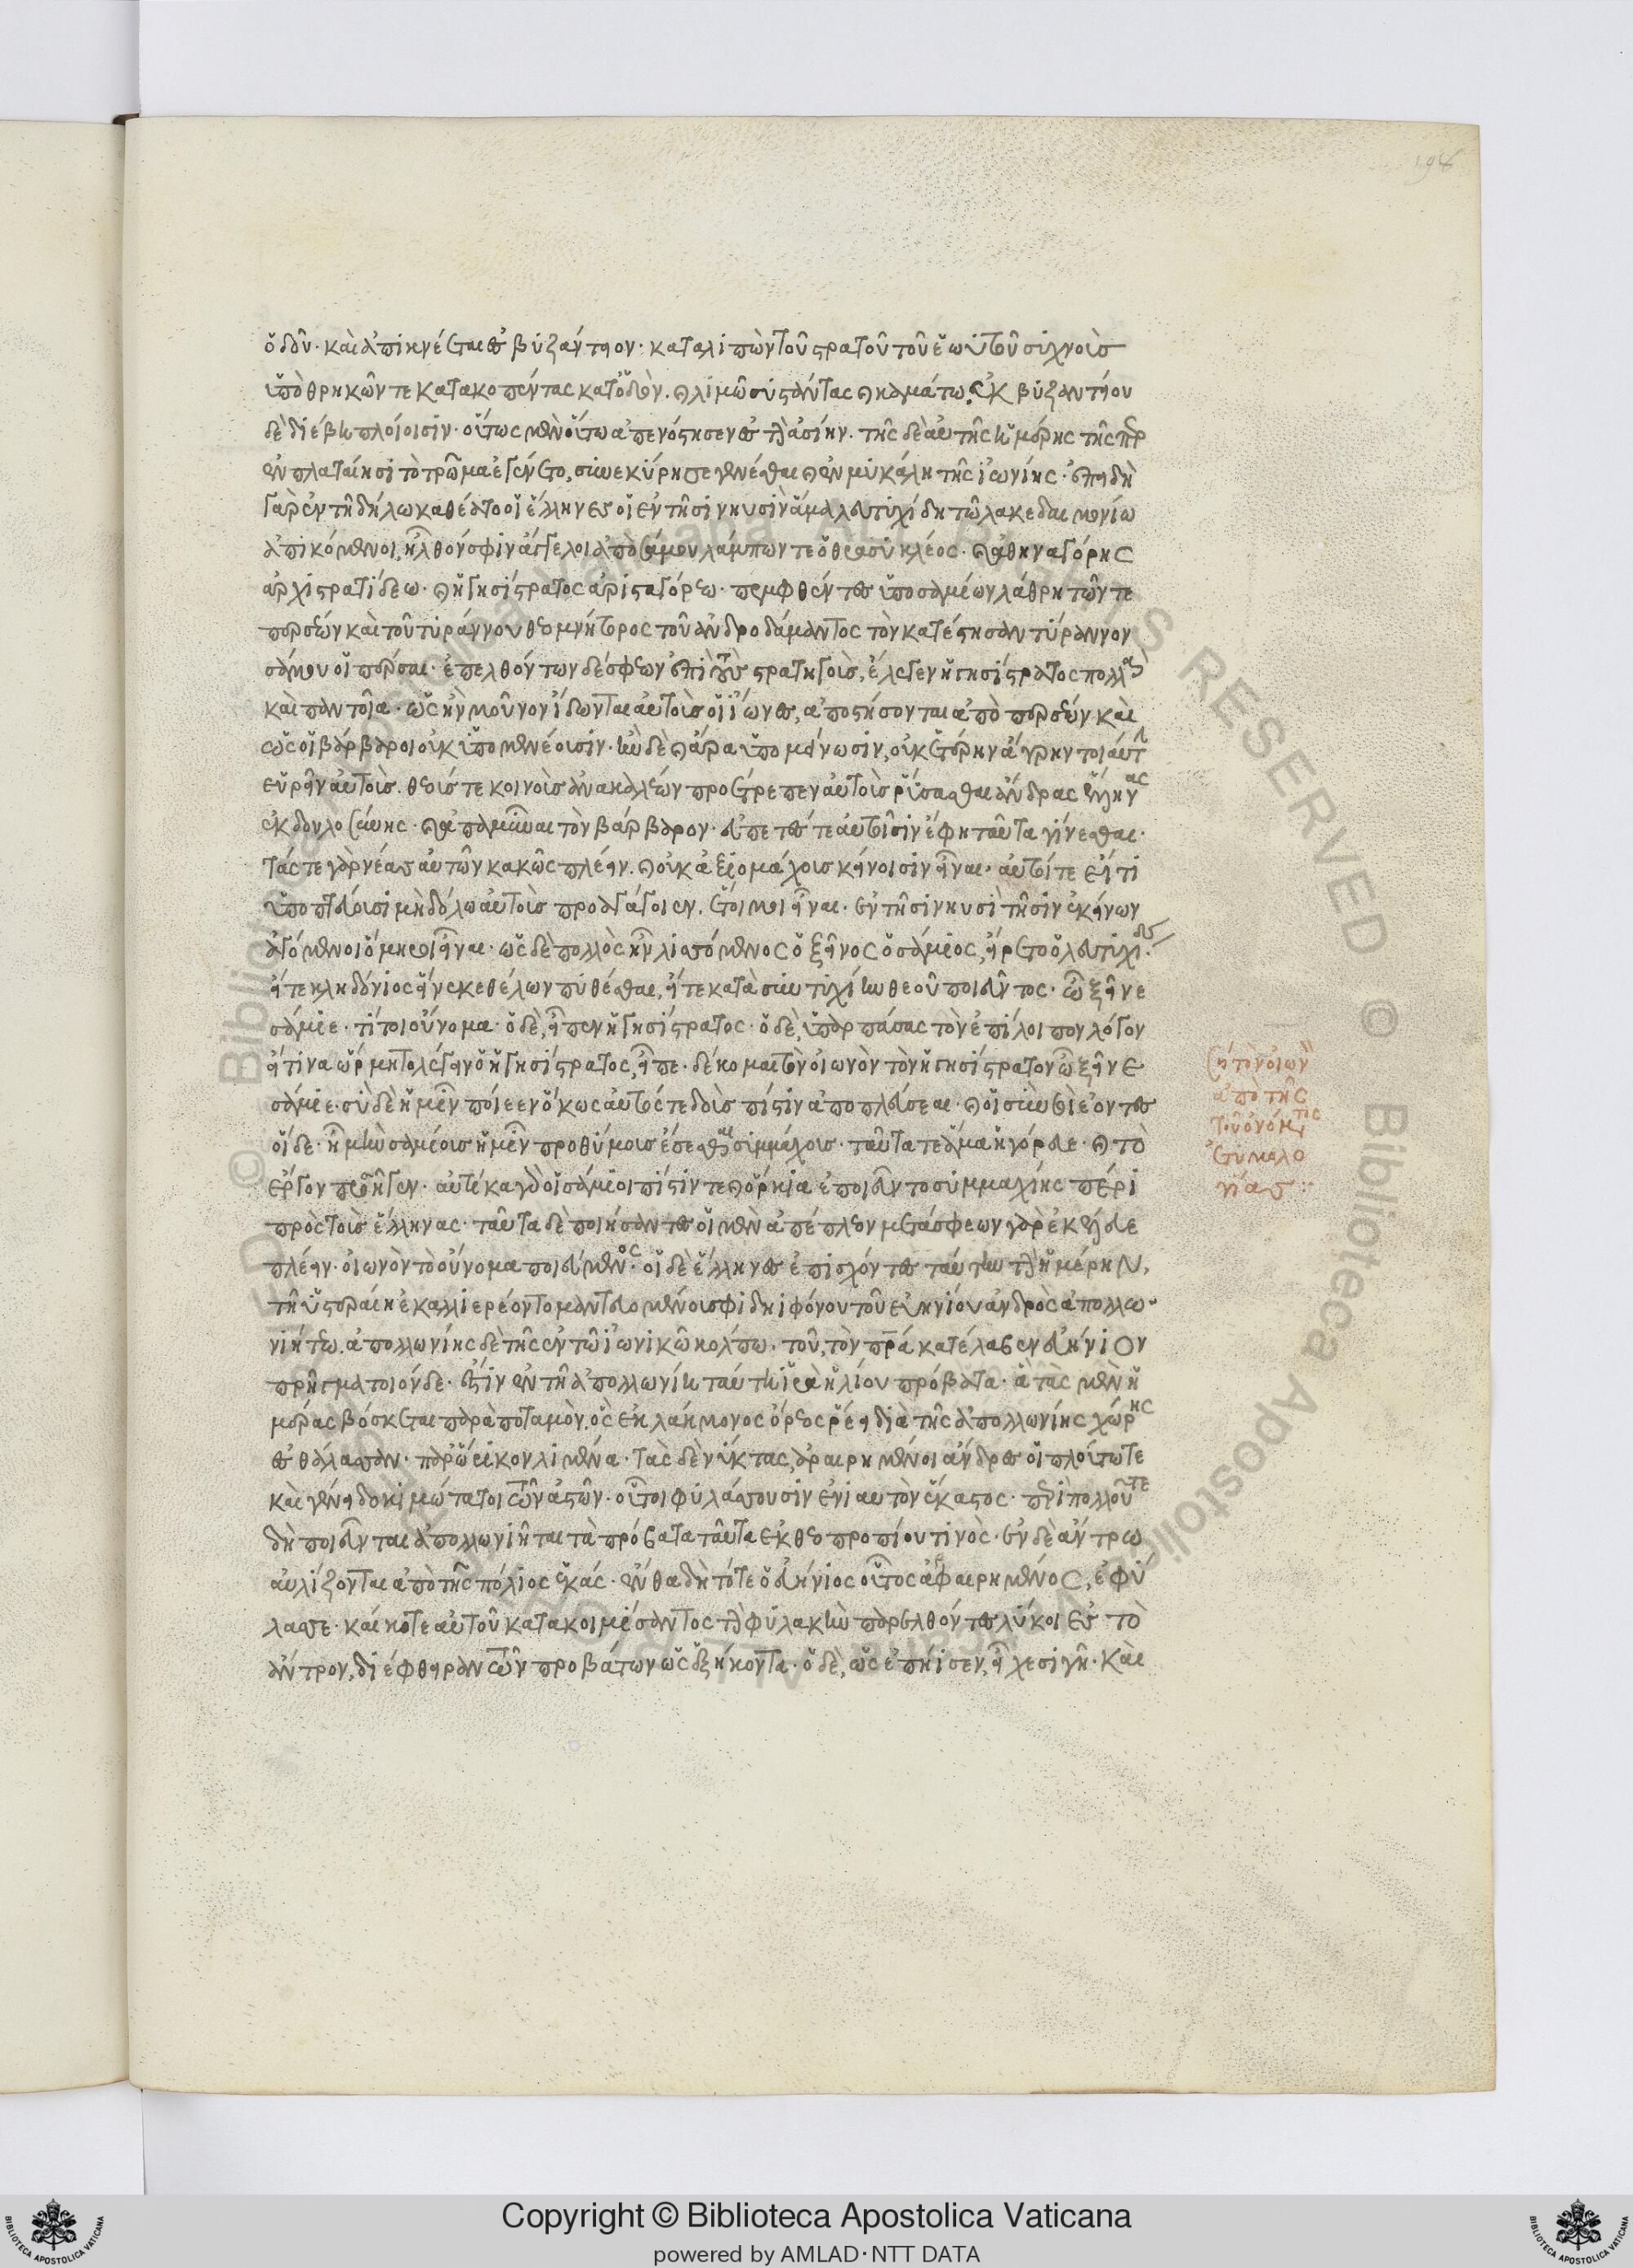 198
ὁδοῦ· καὶ ἀπικνέεται ἐς βυζάντιον· καταλιπὼν τοῦ στρατοῦ τοῦ ἑωυτοῦ συχνοὺς
ὑπὸ θρηκῶν τε κατακοπέντας κατ' ὁδὸν. καὶ λιμῶ συστάντας καὶ καμάτω. ἐκ βυζαντίου
δὲ διέβη πλοίοισιν· οὕτως μὲν οὕτω ἀπενόστησεν ἐς τὴν ἀσίην. τῆς δὲ αὐτῆς ἡμέρης τῆς περ
ἐν πλαταιῆσι τὸ τρῶμα ἐγένετο, συνεκύρησε γενέσθαι καὶ ἐν μυκάλη τῆς ἰωνίης· ἐπειδὴ
γὰρ ἐν τῆ δήλω κατέατο οἱ ἕλληνες οἱ ἐν τῆσι νηυσὶν ἅμα λευτυχίδη τῶ λακεδαιμονίω
ἀπικόμενοι, ἦλθόν σφιν ἄγγελοι ἀπὸ σάμου λάμπων τε ὁ θρασυκλέος· καὶ ἀθηναγόρης
ἀρχιστρατίδεω· καὶ ἡγησίστρατος ἀρισταγόρεω· πεμφθέντες ὑπὸ σαμίων λάθρη τῶν τε
περσέων καὶ τοῦ τυράννου θεομνήστορος τοῦ ἀνδροδάμαντος τὸν κατέστησαν τύραννον
σάμου οἱ πέρσαι· ἐπελθόντων δέ σφεων ἐπὶ τοὺς στρατηγοὺς, ἔλεγεν ἡγησίστρατος πολλὰ
καὶ παντοῖα· ὡς ἢν μοῦνον ἴδωνται αὐτοὺς οἱ ἴωνες, ἀποστήσονται ἀπὸ περσέων καὶ
ὡς οἱ βάρβαροι οὐκ ὑπομενέουσιν· ἢν δὲ καὶ ἄρα ὑπομείνωσιν, οὐκ ἑτέρην ἄγρην τοιαύτην
εὑρεῖν αὐτοὺς. θεούς τε κοινοὺς ἀνακαλέων προέτρεπεν αὐτοὺς ῥύσασθαι ἄνδρας ἕλληνας
ἐκ δουλοσύνης· καὶ ἀπαμῦναι τὸν βάρβαρον· εὐπετές τε αὐτοῖσιν ἔφη ταῦτα γίνεσθαι·
τάς τε γὰρ νέας αὐτῶν κακῶς πλέειν. καὶ οὐκ ἀξιομάχους κείνοισιν εἶναι· αὐτοί τε εἴ τι
ὑποπτεύουσι μὴ δόλω αὐτοὺς προάγοιεν. ἕτοιμοι εἶναι· ἐν τῆσι νηυσὶ τῆσιν ἐκείνων
ἀγόμενοι ὅμηροι εἶναι· ὡς δὲ πολλὸς ἦν λισσόμενος ὁ ξεῖνος ὁ σάμιος, εἴρετο ὁ λευτυχίδης·
εἴτε κληδόνος εἵνεκε θέλων πυθέσθαι, εἴτε κατὰ συντυχίην θεοῦ ποιεῦντος· ὦ ξεῖνε
σάμιε· τί τοι οὔνομα· ὁ δὲ, εἶπεν ἡγησίστρατος· ὁ δὲ, ὑπαρπάσας τὸν ἐπίλοιπον λόγον
εἴ τινα ὥρμητο λέγειν ὁ ἡγησίστρατος, εἶπε· δέκομαι τὸν οἰωνὸν τὸν ἡγησίστρατον ὦ ξεῖνε
σάμιε· σὺ δὲ ἡμῖν ποίεε ὅκως αὐτός τε δοὺς πίστιν ἀποπλεύσεαι· καὶ οἱ σὺν σοὶ ἐόντες
οἵδε· ἦ μὴν σαμίους ἡμῖν προθύμους ἔσεσθαι συμμάχους· ταῦτά τε ἅμα ἠγόρευε· καὶ τὸ
ἔργον προσῆγεν· αὐτίκα γὰρ οἱ σάμιοι πίστιν τε καὶ ὅρκια ἐποιεῦντο συμμαχίης πέρι
πρὸς τοὺς ἕλληνας· ταῦτα δὲ ποιήσαντες οἱ μὲν ἀπέπλεον μετὰ σφέων γὰρ ἐκέλευε
πλέειν· οἰωνὸν τὸ οὔνομα ποιεύμενος· οἱ δὲ ἕλληνες ἐπισχόντες ταύτην τὴν ἡμέρην,
τῆ ὑστεραίη ἐκαλλιερέοντο μαντευομένου σφι δηιφόνου τοῦ εὐηνίου ἀνδρὸς ἀπολλω-
νιήτεω. ἀπολλωνίης δὲ τῆς ἐν τῶ ἰωνικῶ κόλπω· τοῦ, τὸν πρα κατέλαβεν εὐήνιον
πρῆγμα τοιόνδε· ἔστιν ἐν τῆ ἀπολλωνίη ταύτη ἱρὰ ἡλίου πρόβατα· ἃ τὰς μὲν ἡ
μέρας βόσκεται παρὰ ποταμὸν. ὃς ἐκ λάκμονος ὄρεος ῥέει διὰ τῆς ἀπολλωνίης χώρης
ἐς θάλασσαν· παρ' ὤρικον λιμένα· τὰς δὲ νύκτας, ἀραιρημένοι ἄνδρες οἱ πλούτω τε
καὶ γένει δοκιμώτατοι τῶν ἀστῶν· οὗτοι φυλάσσουσιν ἐνιαυτὸν ἕκαστος· περὶ πολλοῦ τε
δὴ ποιεῦνται ἀπολλωνιῆται τὰ πρόβατα ταῦτα ἐκ θεοπροπίου τινὸς· ἐν δὲ ἄντρω
αὐλίζονται ἀπὸ τῆς πόλιος ἑκάς· ἔνθα δὴ τότε ὁ εὐήνιος οὗτος ἀραιρημένος, ἐφύ
λασσε· καί κοτε αὐτοῦ κατακοιμίσαντος τὴν φυλακὴν παρελθόντες λύκοι ἐς τὸ
ἄντρον, διέφθειραν τῶν προβάτων ὡς ἑξήκοντα· ὁ δὲ, ὡς ἐπήισεν, εἶχε σιγῆ· καὶ
ση τὸν οἰωνὸν
ἀπὸ τῆς
τοῦ ὀνόματος
ἐτυμολο
γίας :
Copyright © Biblioteca Apostolica Vaticana
powered by AMLAD·NTT DATA